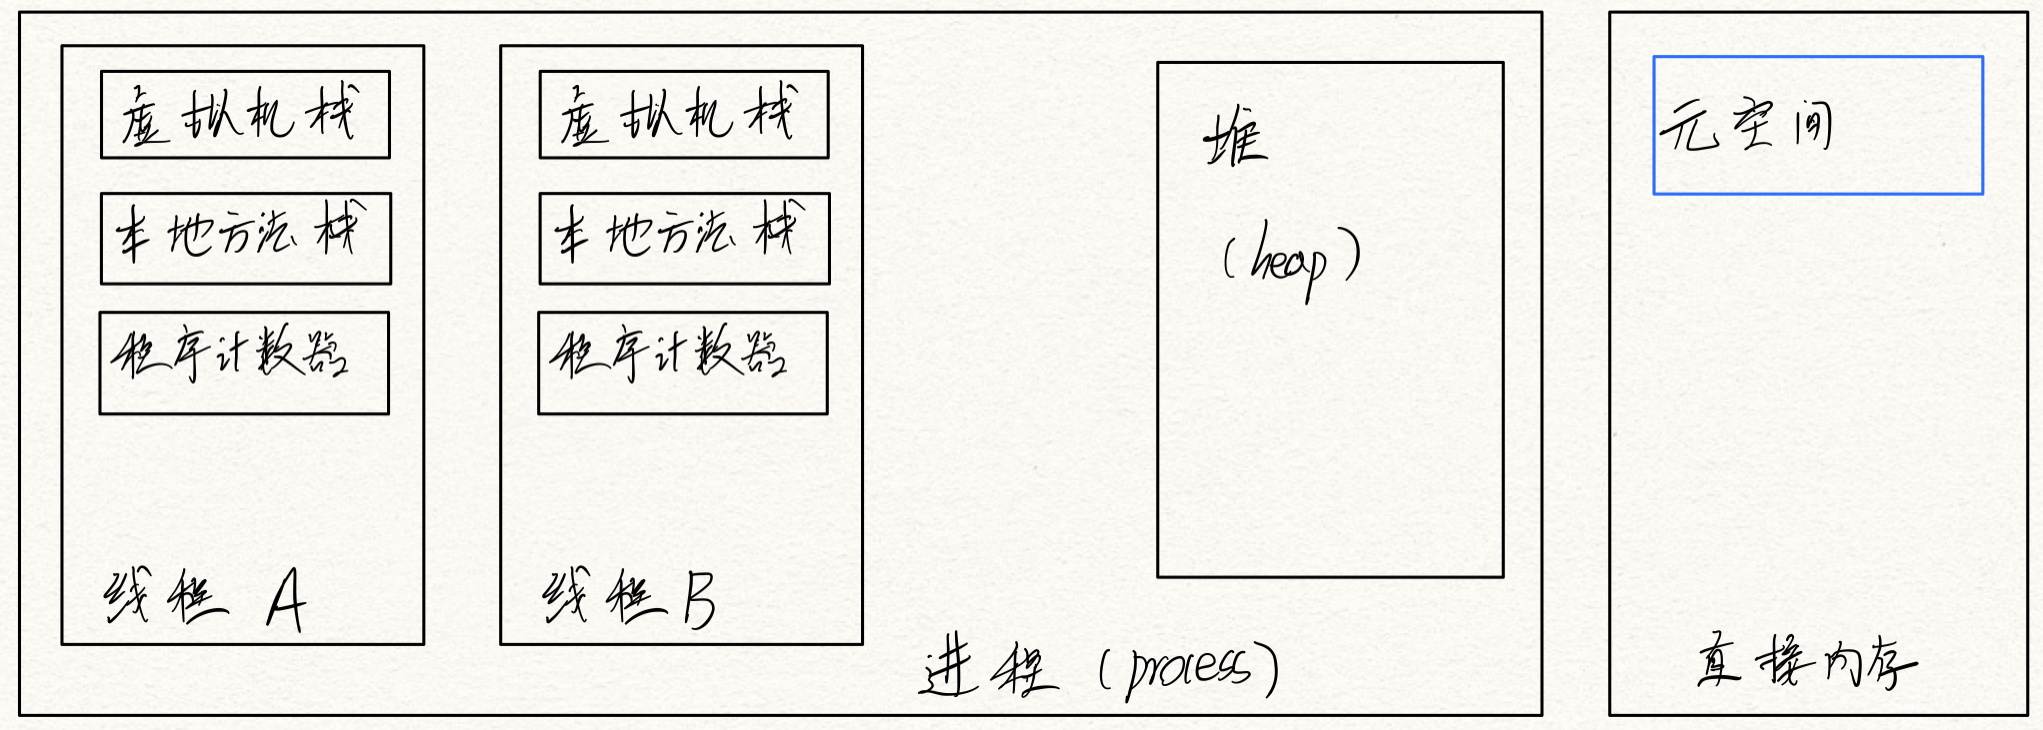 虚拟机栈
本地方法栈
程序计数器
线程 A
虚拟机栈
本地方法栈
程序计数器
线程 B
堆
(heap)
进程 (process)
元空间
直接内存